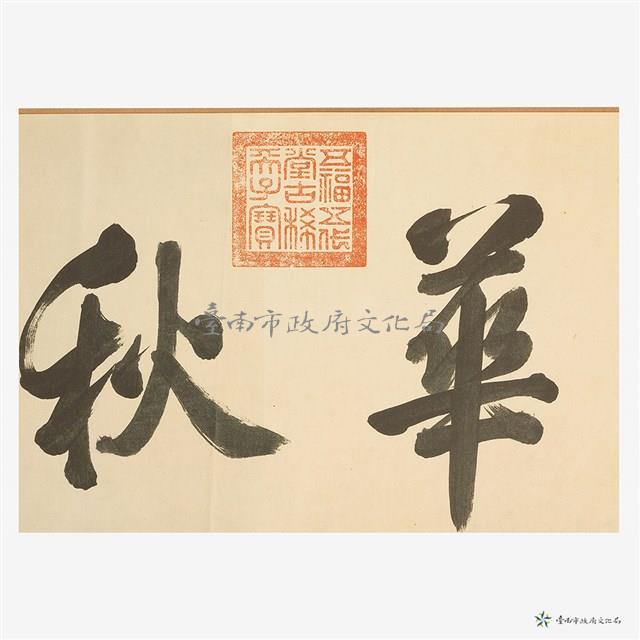 華秋
五福五代
堂古稀
天子寶
臺南市政府文化局
臺南市政府文化局